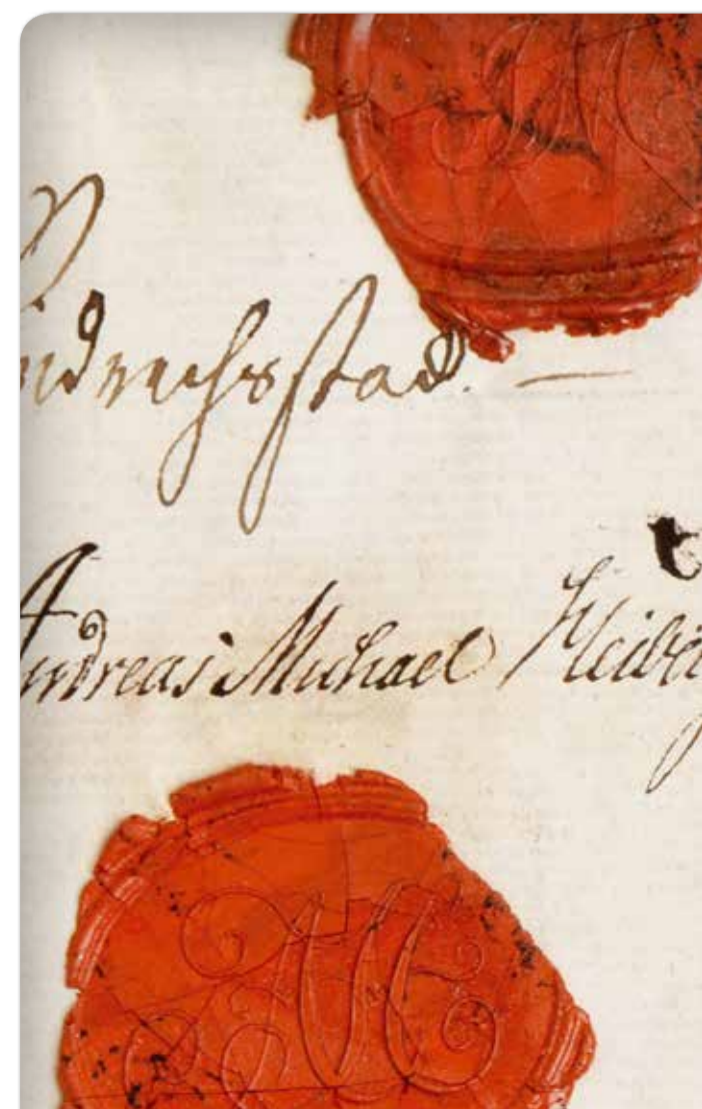 idrichsstad. —
Andreas Michael Heibe